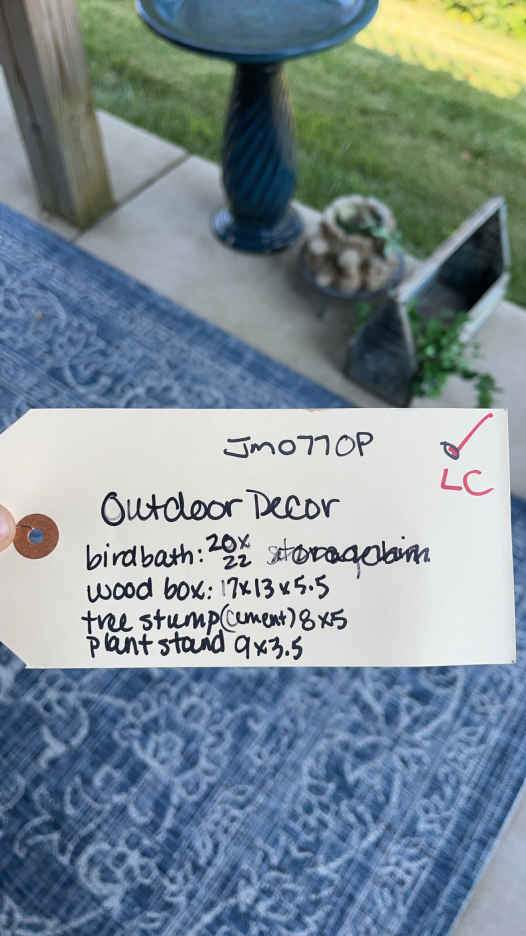 JM0770P
LC
Outdoor Decor
birdbath: 20x
22
wood box: 17x13x5.5
tree stump (cement) 8x5
plant stand 9x3.5